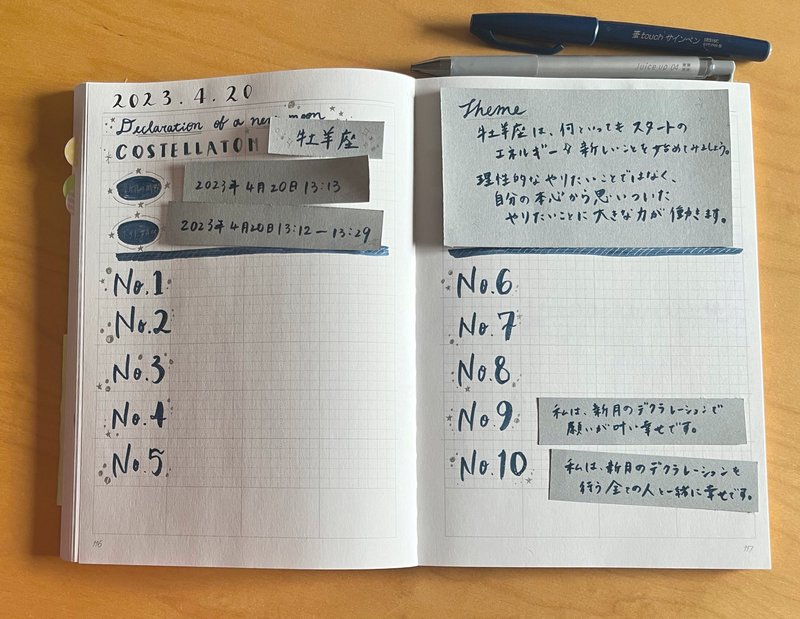 2023.4.20
Declaration of a new moon
COSTELLATON
牡羊座
2023年4月20日 13:13
2023年4月20日 13:12 ー 13:29
No.1
No.2
No.3
No.4
No.5
116
Theme
牡羊座は、何といってもスタートの
エネルギー。新しいことを始めてみましょう。
理性的なやりたいことではなく、
自分の本心から思いついた
やりたいことに大きな力が働きます。
No.6
No.7
No.8
No.9
私は、新月のデクラレーションで
願いが叶い幸せです。
No.10
私は、新月のデクラレーションを
行う全ての人と一緒に幸せです。
117
筆touch サインペン
Juice up 04